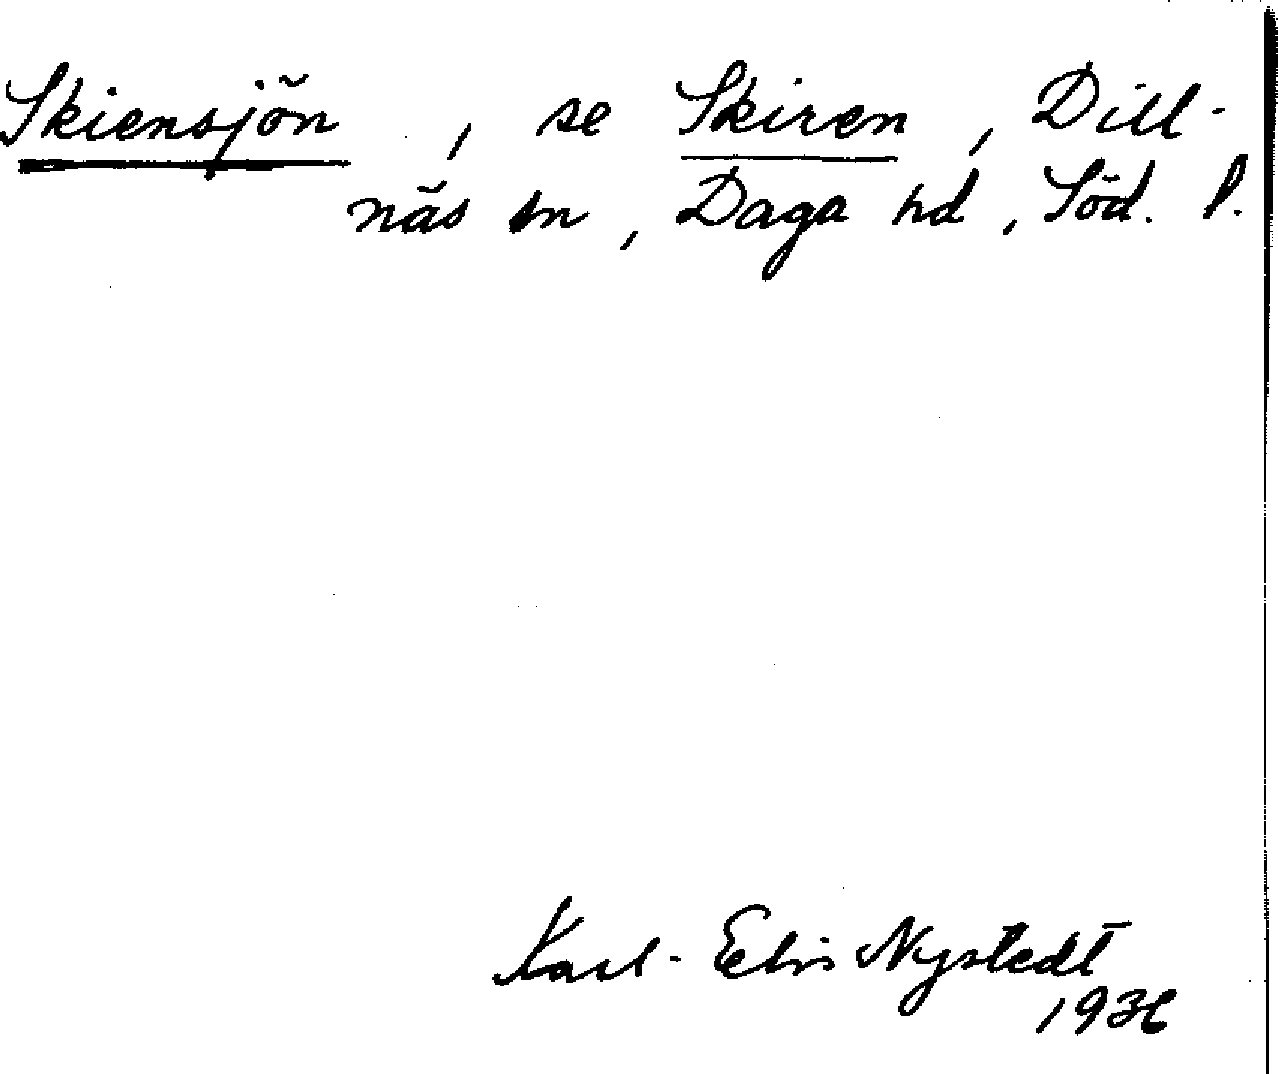 Skiensjön, se Skiren, Dill-
näs sn, Daga hd, Söd. l.
Karl-Elis Nystedt
1936